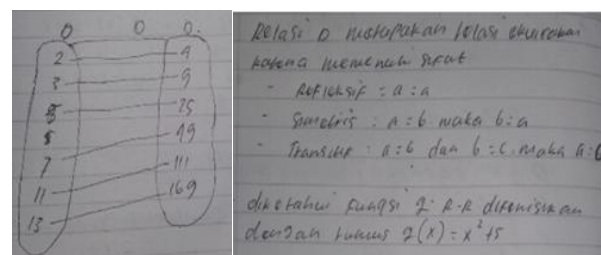 0 0 0.
2 4
3 9
5 25
7 49
11 111
13 169
Relasi D merupakan relasi ekuivalen
karena memenuhi sifat
- Refleksif = a = a
- Simetris : a = b maka b = a
- Transitif : a = b dan b = c. maka a = c
diketahui fungsi g: R-R difenisikan
dengan rumus g(x) = x² + 5